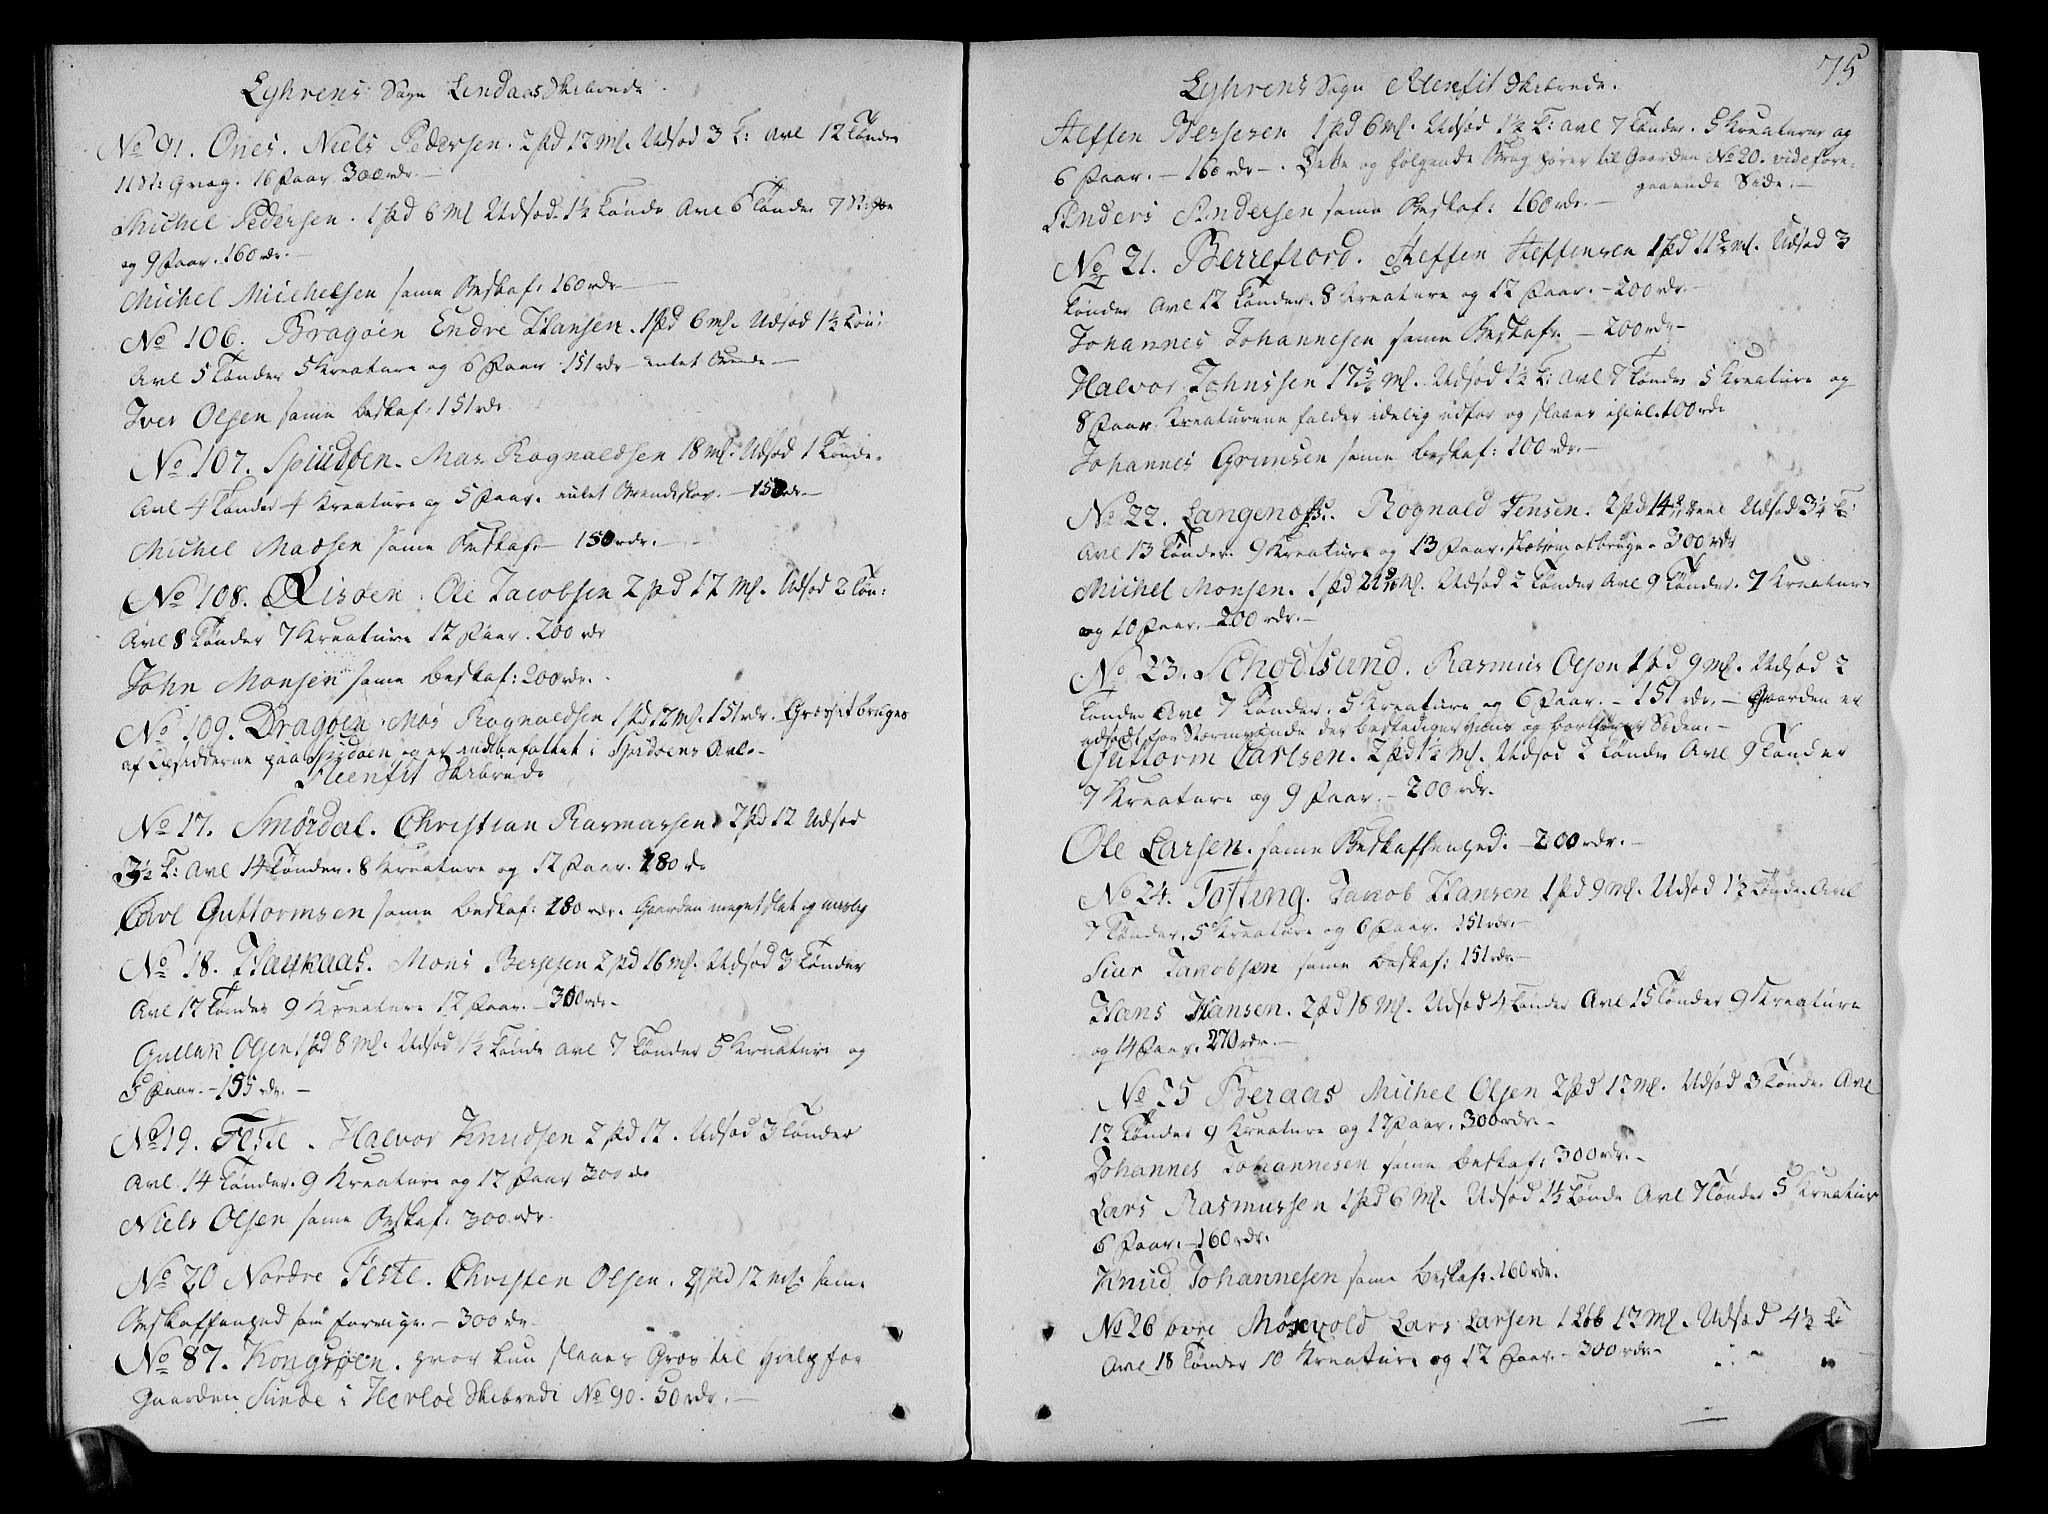 Lyhrens Sogn Lindaas Skibrede.
No 91. Ones. Niels Pedersen. 2 pd 12 mk. Udsød 3 T: Avl 12 Tønder
11 St: Qvæg. 16 Faar 300 rdr.
Michel Pedersen. 1 pd 6 mk Udsød 1½ Tønde Avl 6 Tønder 7
og 9 Faar. 160 rdr.
Michel Michelsen same Beskaf: 160 rdr
No 106. Bragøen Endre Hansen. 1 pd 6 mk. Udsød 1½ Tøn:
Avl 5 Tønder 5 Kreature og 6 Faar 151 rdr intet
Iver Olsen same Beskaf: 151 rdr
No 107. Spiudøen. Mas Rognaldsen 18 mk. Udsød 1 Tønde.
Avl 4 Tønder 4 Kreature og 5 Faar. intet Brendeskov. 150 rdr.
Michel Madsen same Beskaf: 150 rdr.
No 108. Risøen. Ole Jacobsen 2 pd 12 mk. Udsød 2 Tøn:
Avl 8 Tønder 7 Kreature 12 Faar. 200 rdr
John Monsen same Beskaf: 200 rdr.
No 109. Dragøen. Mos Rognaldsen 1 pd 12 mk. 151 rdr. Græsset bruges
af Opsidderne paa Spidøen og er indbefattet i Spidøens Avl.
Alenfit Skibrede
No 17. Smørdal. Christian Rasmussen 2 pd 12 Udsød
3½ T: Avl 14 Tønder. 8 Kreature og 12 Faar. 180 rdr
Carl Guttormsen same Beskaf: 180 rdr. Gaarden meget slet og
No 18. Haukaas. Mons Bersesen 2 pd 16 mk. Udsød 3 Tønder
Avl 12 Tønder 9 Kreature 12 Faar. 300 rdr.
Gullak Olsen 1 pd 8 mk. Udsød 1½ Tønde Avl 7 Tønder 5 Kreature og
5 Faar. 155 rdr.
No 19. Feste. Halvor Knudsen 2 pd 12. Udsød 3 Tønder
Avl 14 Tønder. 9 Kreature og 12 Faar 300 rdr
Niels Olsen same Beskaf. 300 rdr.
No 20 Nordre Feste. Christen Olsen. 2 pd 12 mk: same
Beskaffenhed som forrige. 300 rdr.
No 87. Kongsøen. hvor kun slaaes Græs til hielp for
Gaarden Sunde i Herløe Skibrede No 90. 50 rdr.
75
Lyhrens Sogn Alenfit Skibrede.
Steffen Bersesen 1 pd 6 mk. Udsød 1½ T: Avl 7 Tønder. 5 Kreaturer og
6 Faar. 160 rdr. Dette og følgende Brug hører til Gaarden No 20. vide fore-
gaaende Side.
Anders Andersen same Beskaf: 160 rdr.
No 21. Berrefiord. Steffen Steffensen 1 pd 11 mk. Udsød 3
Tønder Avl 12 Tønder. 8 Kreature og 12 Faar. 200 rdr.
Johannes Johannesen same Beskaf: 200 rdr
Halvor Johnssen 17 mk. Udsød 1½ T: Avl 7 Tønder 5 Kreature og
8 Faar Kreaturene falder idelig udfor og slaaer ihiel. 100 rdr
Johannes Grunsen same Beskaf: 100 rdr.
No 22. Langenøs. Rognald Jensen. 2 pd 14 Udsød 3¼ T:
Avl 13 Tønder. 9 Kreature og 13 Faar. slætsom at bruge. 300 rdr
Michel Monsen. 1 pd 21 mk. Udsød 2 Tønder Avl 9 Tønder. 7 Kreature
og 10 Faar. 200 rdr.
No 23. Schodtsund. Rasmus Olsen 1 pd 9 mk. Udsød 2
Tønder Avl 7 Tønder. 5 Kreature og 6 Faar. 151 rdr. Gaarden er
udsadt for Stormvinde der beskadiger Huus og bortfører Sæden.
Guttorm Carlsen. 2 pd 1½ mk. Udsød 2 Tønder Avl 9 Tønder
7 Kreature og 9 Faar. 200 rdr.
Ole Larsen. same Beskaffenhed. 200 rdr.
No 24. Tofting. Jacob Hansen 1 pd 9 mk. Udsød 1½ Tønde. Avl
7 Tønder. 5 Kreature og 6 Faar. 151 rdr.
Siur Jacobsen same Beskaf: 151 rdr.
Hans Hansen. 2 pd 18 mk. Udsød 4 Tønder Avl 15 Tønder 9 Kreature
og 14 Faar. 270 rdr.
No 25 Beraas Michel Olsen 2 pd 12 mk. Udsød 3 Tønder Avl
12 Tønder 9 Kreature og 12 Faar. 300 rdr.
Johannes Johannesen same Beskaf: 300 rdr.
Lars Rasmussen 1 pd 6 mk. Udsød 1½ Tønde Avl 7 Tønder 5 Kreatur
6 Faar. 160 rdr.
Knud Johannesen same Beskaf: 160 rdr.
No 26 øvre Mørvold Lars Larsen 1 Løb 12 mk. Udsød 4½ T:
Avl 18 Tønder 10 Kreature og 12 Faar. 300 rdr.